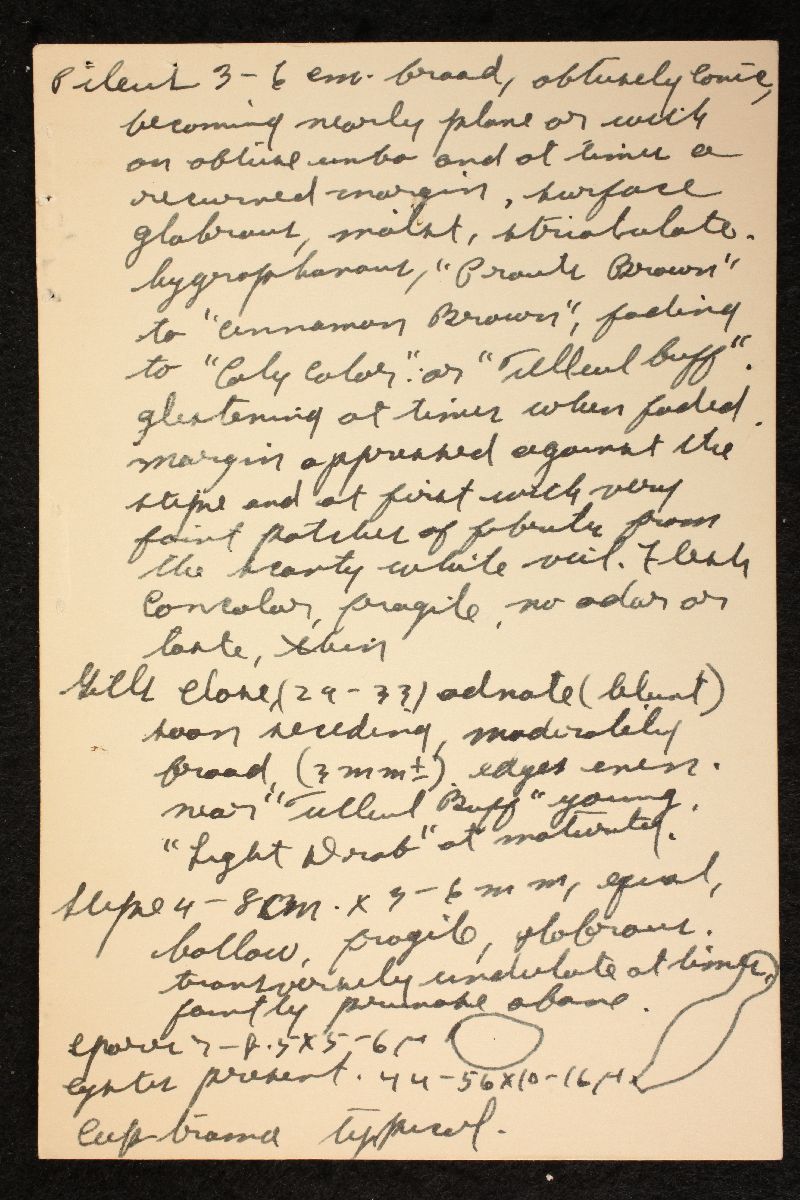 Pileus 3-6 cm. broad, obtusely conic,
becoming nearly plane or with
an obtuse umbo and at times a
recurved margin, surface
glabrous, moist, striatulate.
hygrophanous, "Prout's Brown"
to "Cinnamon Brown", fading
to "Coly Color". or "Tilleul buff".
glistening at times when faded.
margin appressed against the
stipe and at first with very
faint patches of fibrils from
the scanty white veil. Flesh
Concolor, fragile, no odor or
taste, thin
Gills close, (29-33) adnate (blunt)
soon seceding, moderately
broad, (3 mm±) edges even.
near "Tilleul Buff" young,
"Light Drab" at maturity.
Stipe 4-8 cm. x 3-6 mm, equal,
hollow, fragile, glabrous.
transversely undulate at times,
faintly pruinose above.
spores 7-8.5x5-6µ
Cystes present. 44-56x10-16µ.
Cup trama typical.